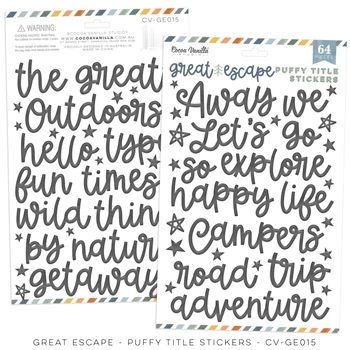 WARNING:
CV-GE015
©COCOA VANILLA STUDIO
WWW.COCOAVANILLA.COM
PROUDLY DESIGNED IN AUSTRALIA
MADE IN CHINA
the great
Outdoors
hello type
fun times
wild thin
by natur
getaway
Cocoa Vanilla
64
great escape
PUFFY TITLE
STICKERS
Away we
Let's go
so explore
happy life
Campers
road trip
adventure
GREAT ESCAPE - PUFFY TITLE STICKERS - CV-GE015